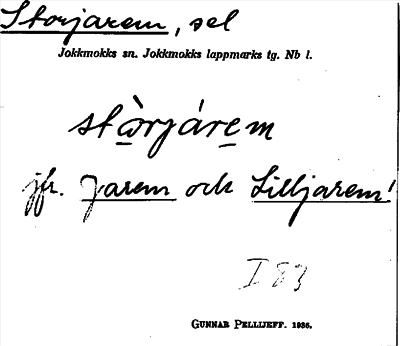 Storjarem, sel
Jokkmokks sn. Jokkmokks lappmarks tg. Nb l.
stὼrjárem
jfr. Jarem och Lilljarem!
I 83
GUNNAR PELLIJEFF. 1936.